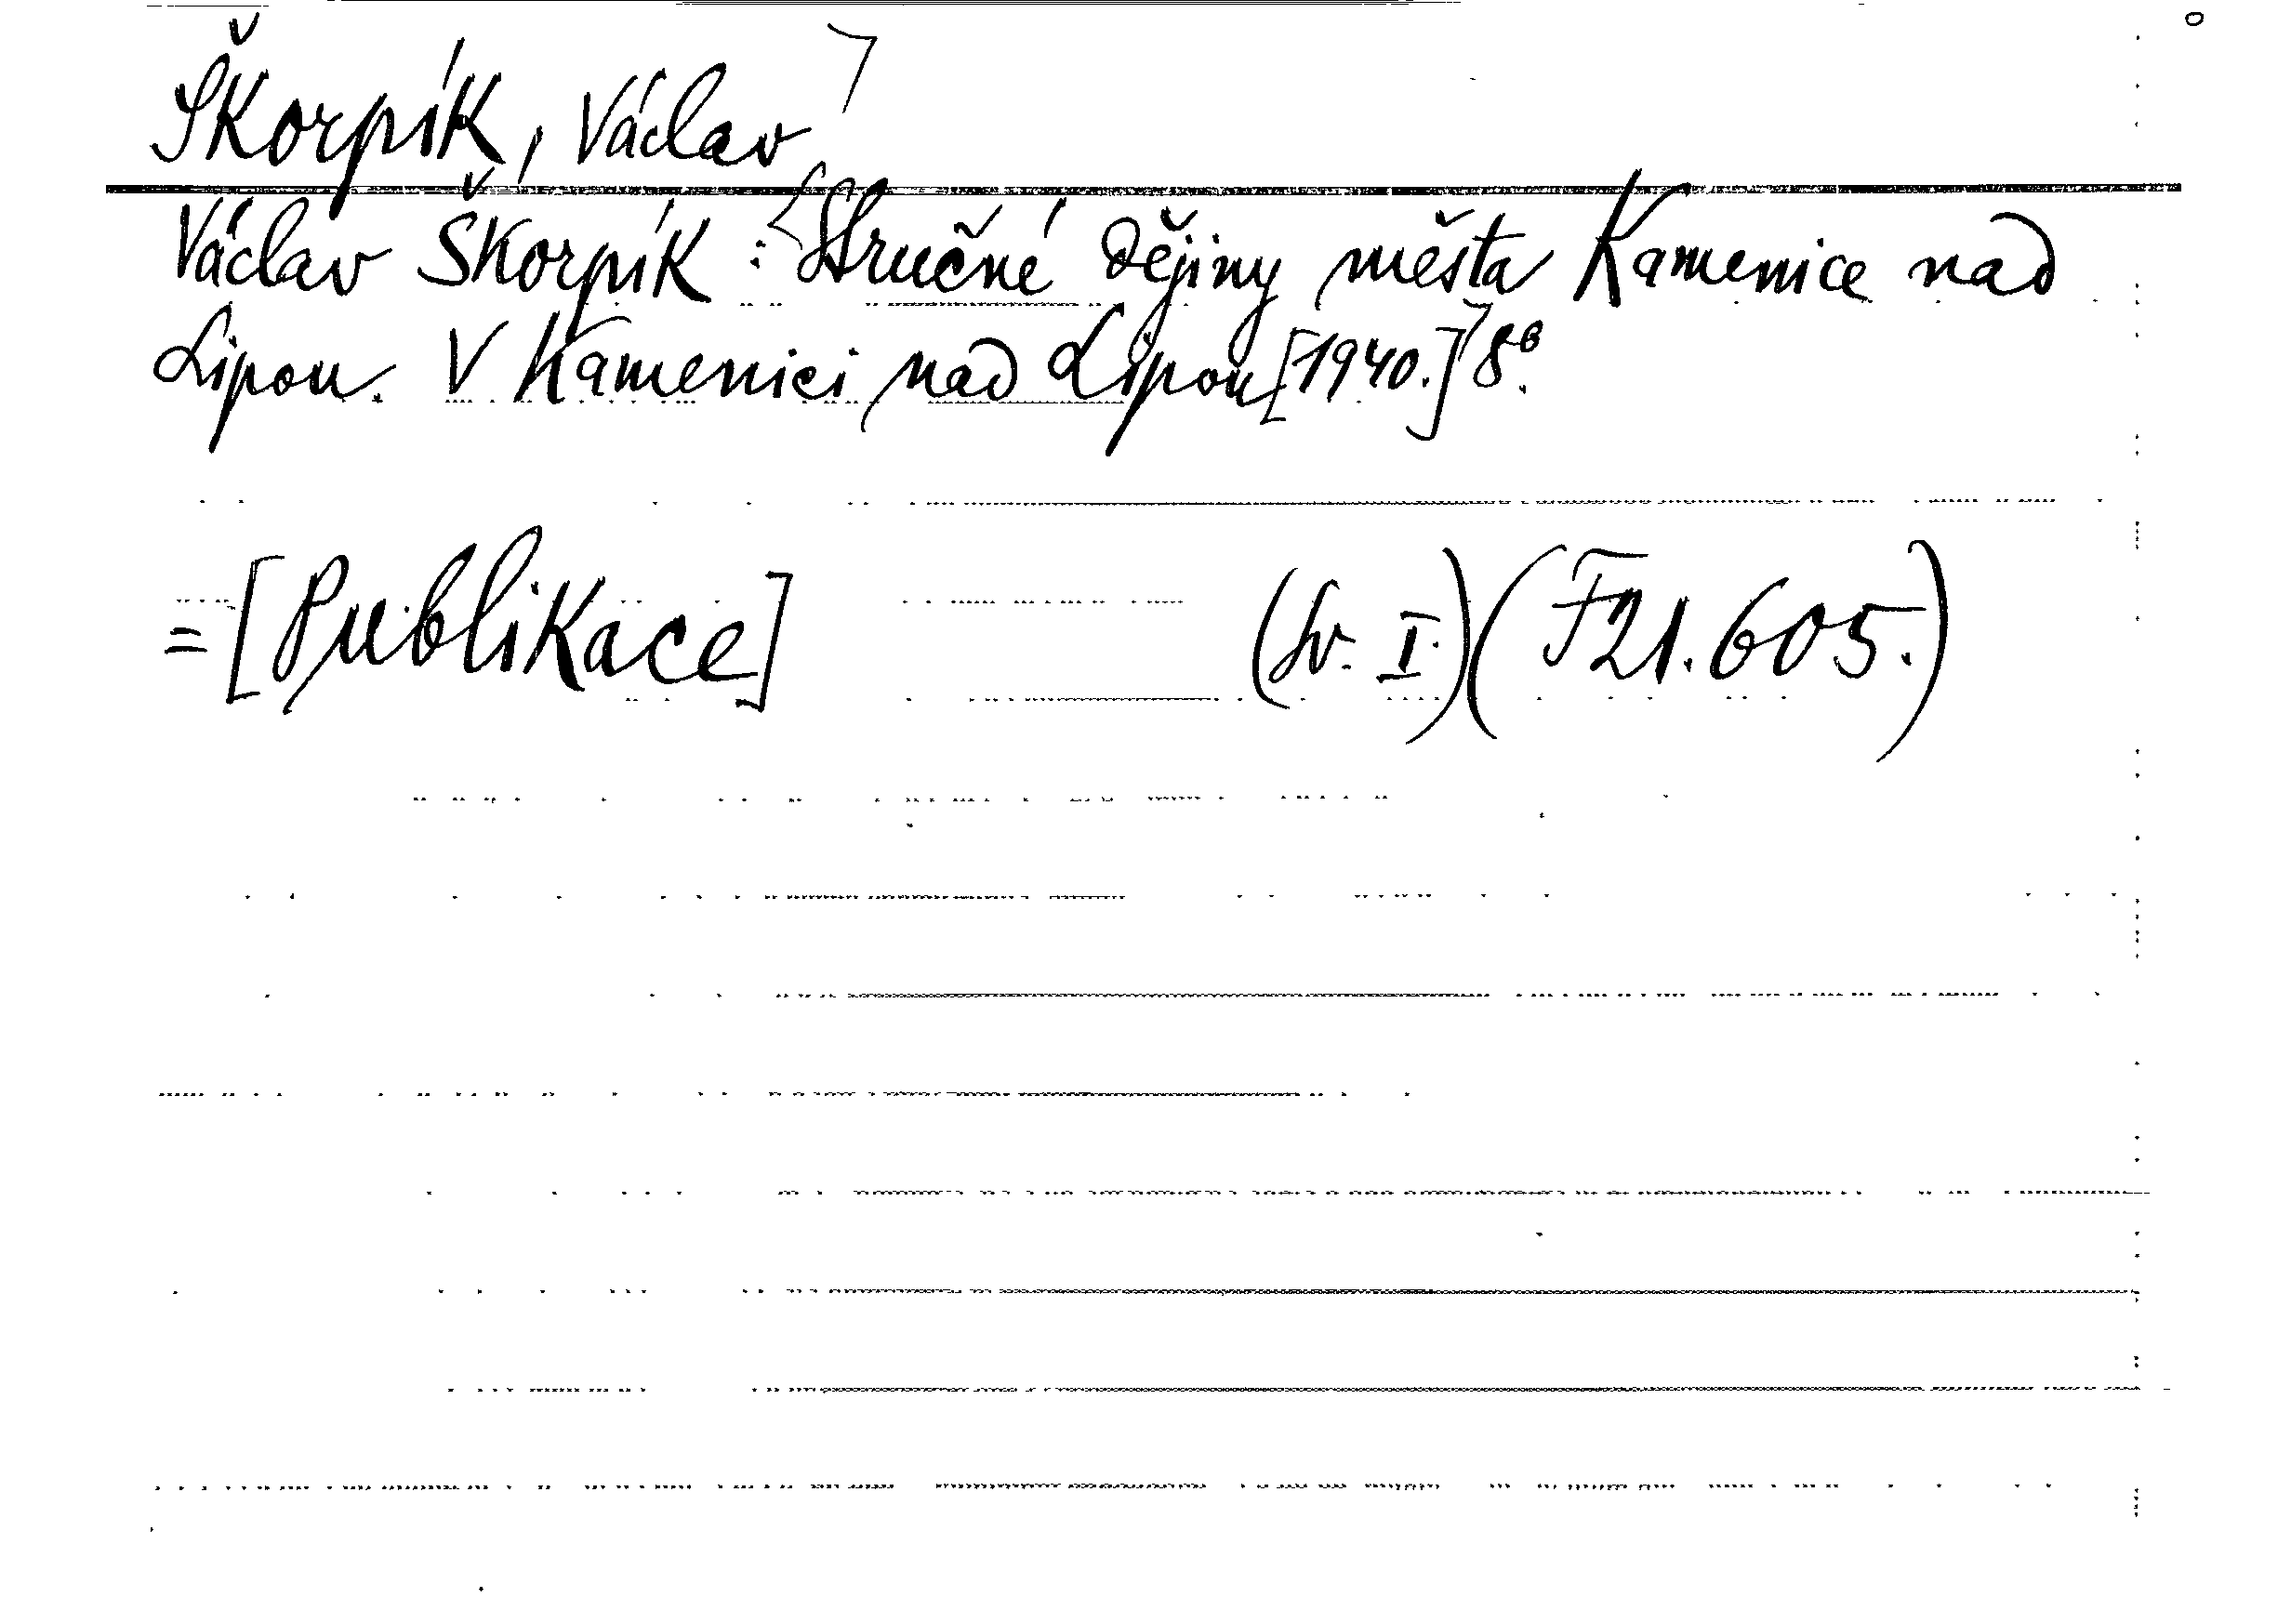 Škorpík, Václav
Václav Škorpík : Stručné dějiny města Kamenice nad
Lipou. V Kamenici nad Lipou [1940.] 8°.
= [Publikace] (Sv. I.) (F 21.605.)